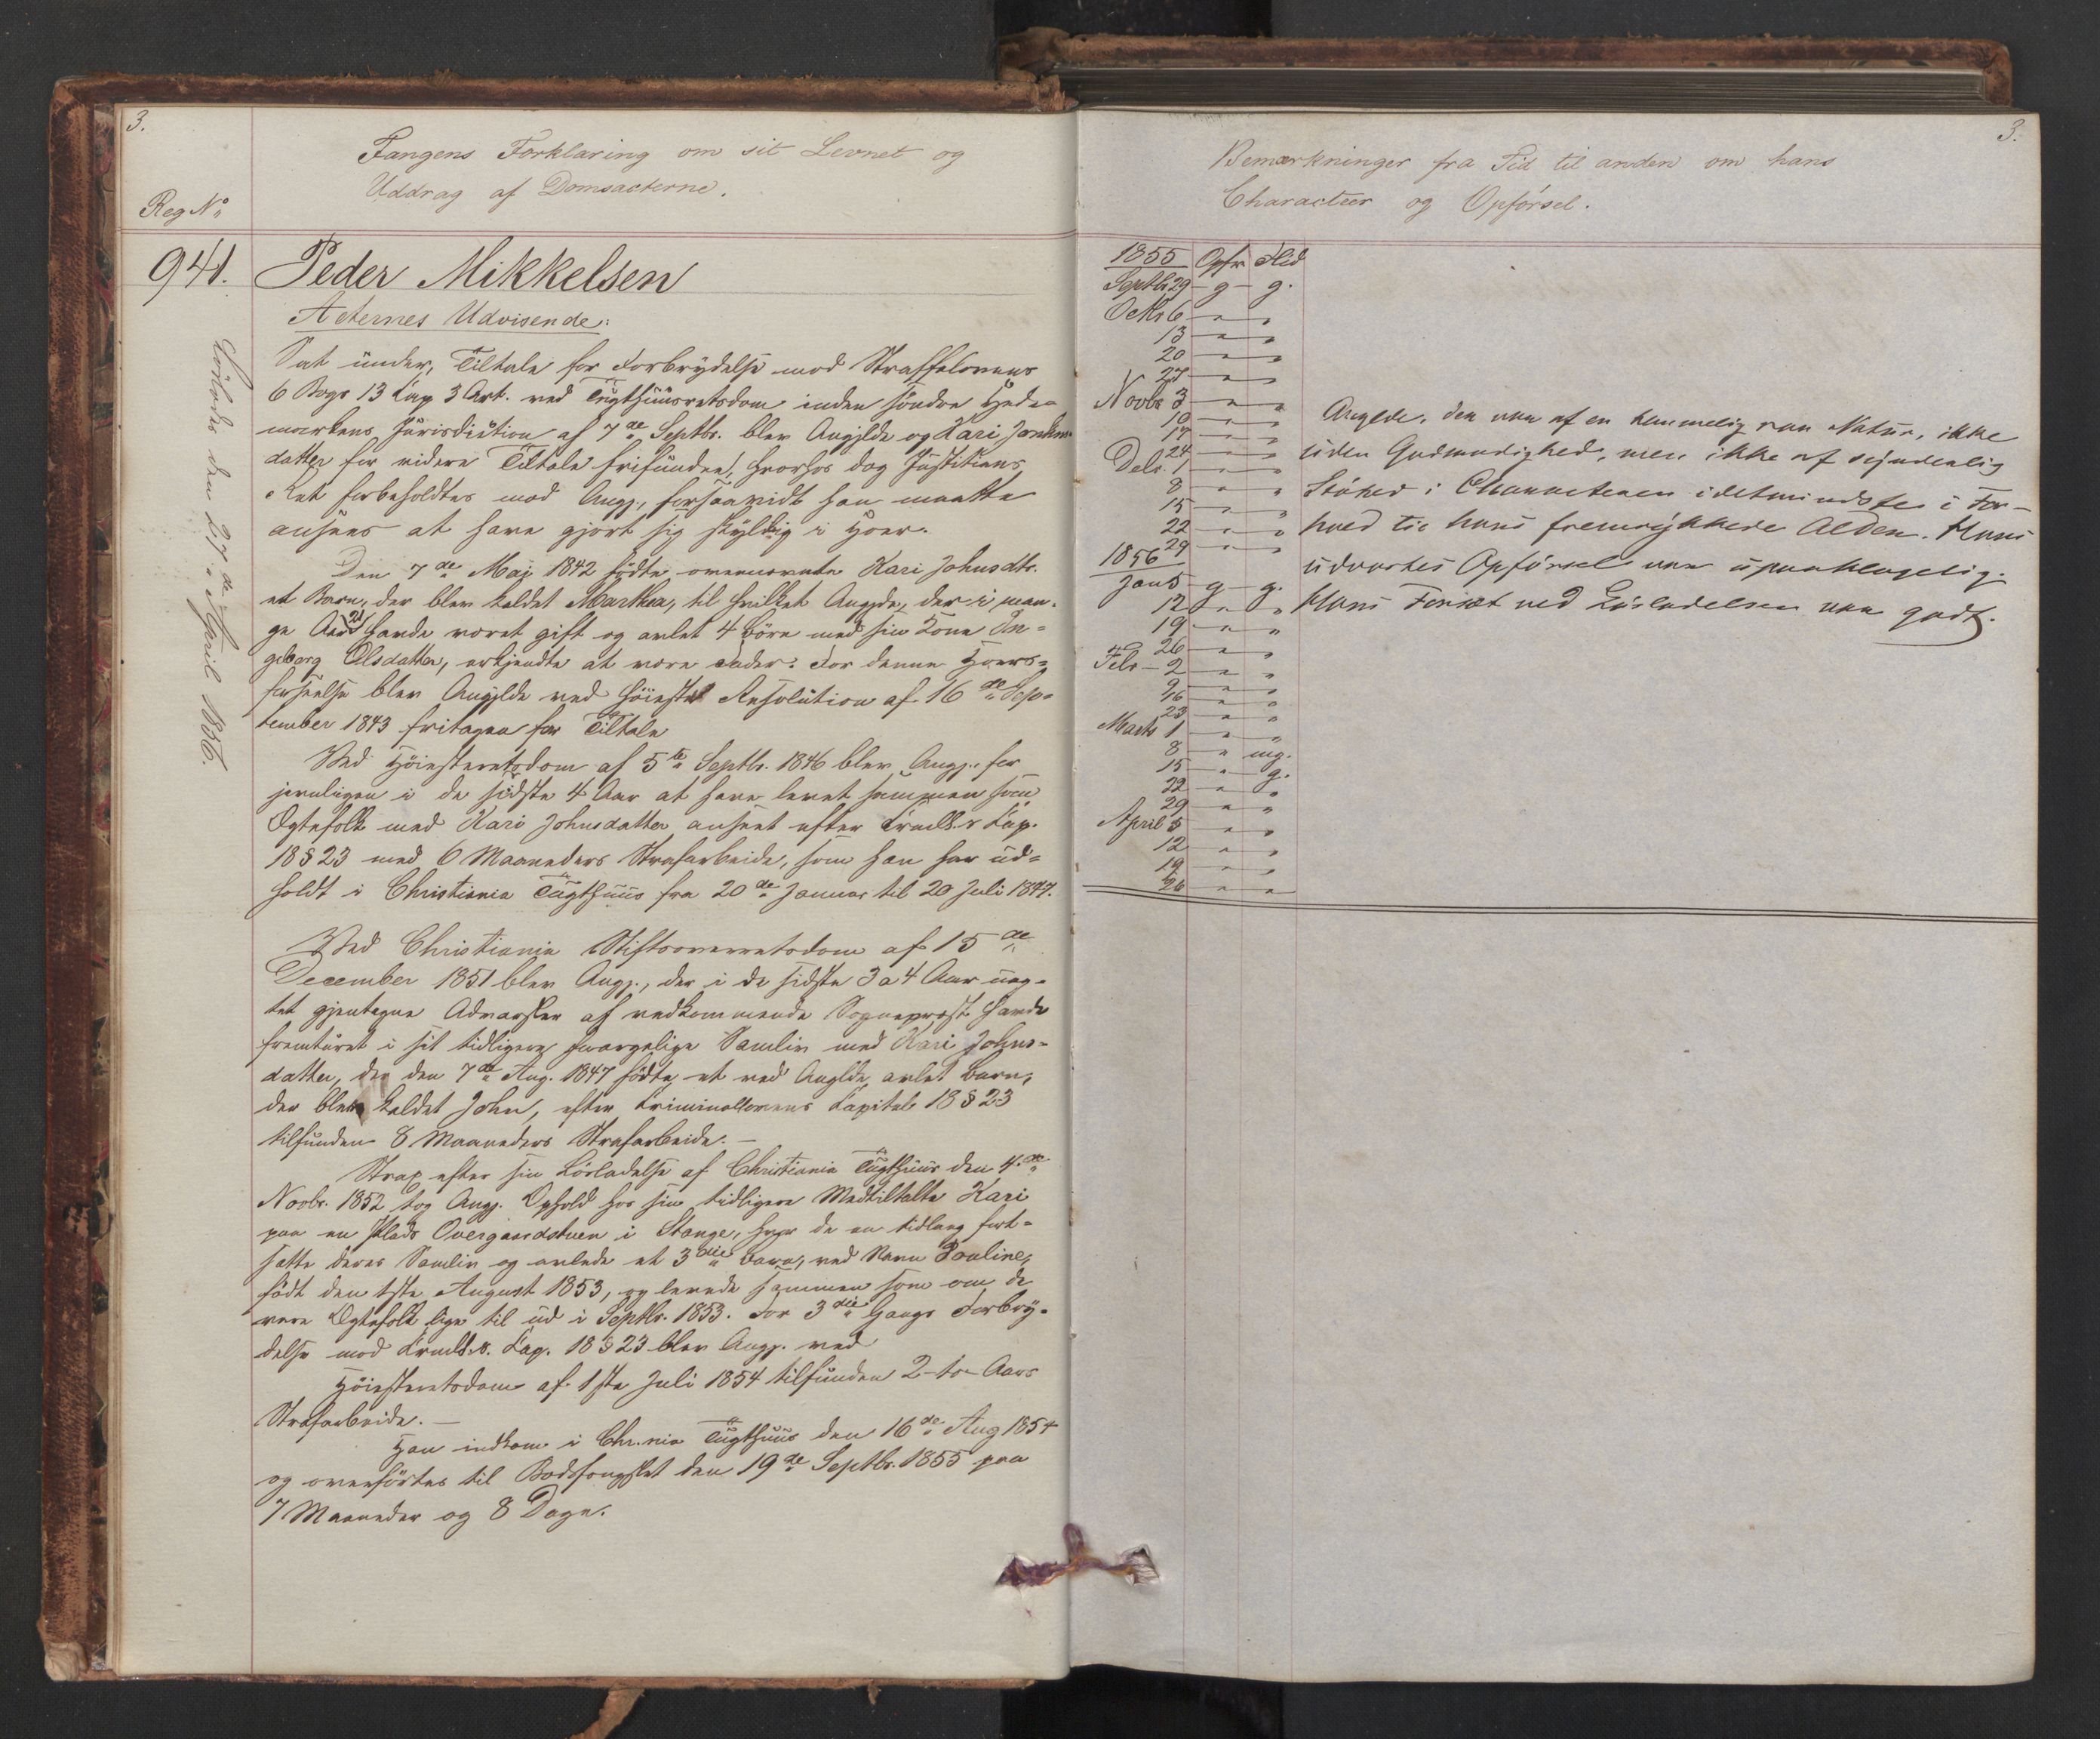 3.
Fangens Forklaring om sit Levnet og
Uddrag af Domsacterne.
Reg No
941.
Peder Mikkelsen
Acternes Udvisende:
Løslades den 27de April 1856.
Sat under Tiltale for Forbrydelse mod Straffelovens
6 Bogs 13 Cap 3 Art. ved Tugthuusretsdom inden søndre Hede-
markens Jurisdiction af 7de Septbr. blev Angjldte og Kari Johns-
datter for videre Tiltale frifunden, hvorhos dog Justitiens
Ret forbeholdtes mod Angj., forsaavidt han maatte
ansees at have gjort sig skyldig i Hoer.
Den 7de Maj 1842 fødte ovennævnte Kari Johnsdtr.
et Barn, der blev kaldet Marthea, til hvilket Angjde, der i man-
ge Aar havde været gift og avlet 4 Börn med sin Kone In-
geborg Olsdatter, erkjendte at være Fader. For denne Hoers-
forseelse blev Angjldte ved høieste Resolution af 16de Sep-
tember 1843 fritagen for Tiltale
Ved Høiesteretsdom af 5te Septbr. 1846 blev Angj. for
jevnligen i de sidste 4 Aar at have levet sammen som
Ægtefolk med Kari Johnsdatter anseet efter Crmll.s Cap.
18 § 23 med 6 Maaneders Strafarbeide, som han har ud-
holdt i Christiania Tugthuus fra 20de Januar til 20 Juli 1847.
Ved Christiania Stiftsoverretsdom af 15de
December 1851 blev Angj., der i de sidste 3 a 4 Aar uag-
tet gjentagne Advarsler af vedkommende Sognepræst havde
fremturet i sit tidligere forargelige Samliv med Kari Johns-
datter, der den 7de Aug. 1847 fødte et ved Angjldte avlet Barn,
der blev kaldet John, efter Kriminallovens Kapitel 18 § 23
tilfunden 8 Maaneders Strafarbeide. —
Strax efter sin Løsladelse af Christiania Tugthuus den 4de
Novbr. 1852 tog Angj. Ophold hos sin tidligere Medtiltalte Kari
paa en Plads Overgaardstuen i Stange, hvor de en tidlang fort-
satte deres Samliv og avlede et 3die Barn, ved Navn Pauline,
født den 1ste August 1853, og levede sammen som om de
vare Ægtefolk lige til ud i Septbr. 1853. For 3die Gangs Forbry-
delse mod Crmll.s. Cap. 18 § 23 blev Angj. ved
Høiesteretsdom af 1ste Juli 1854 tilfunden 2-to Aars
Strafarbeide. —
Han indkom i Chr.nia Tugthuus den 16de Aug 1854
og overførtes til Bodsfængslet den 19de Septbr. 1855 paa
7 Maaneder og 8 Dage.
3.
Bemærkninger fra Tid til anden om hans
Characteer og Opförsel.
1855 Opfr Flid
Septbr 29 - g - g.
Octbr 6 - " "
13 - " "
20 - " "
27 - " "
Novbr 3 - " "
10 - " "
17 - " "
24 - " "
Decbr. 1 - " "
8 - " "
15 - " "
22 - " "
29 - " "
1856
Jan 5 - g - g.
12 " "
19 - " "
26 - " "
Febr - 2 - " "
9 - " "
16 - " "
23 - " "
Marts 1 - " "
8 - " mg.
15 - " g.
22 - " "
29 - " "
April 5 - " "
12 - " "
19 - " "
26 - " "
Angjlde. der var af en temmelig raa Natur, ikke
uden Godmodighed, men ikke af synderlig
Stöhed i Characteren idetmindste i For-
hold til hans fremrykkede Alder. Hans
udvortes Opförsel var upaaklagelig.
Hans Forsæt ved Løsladelsen var godt.